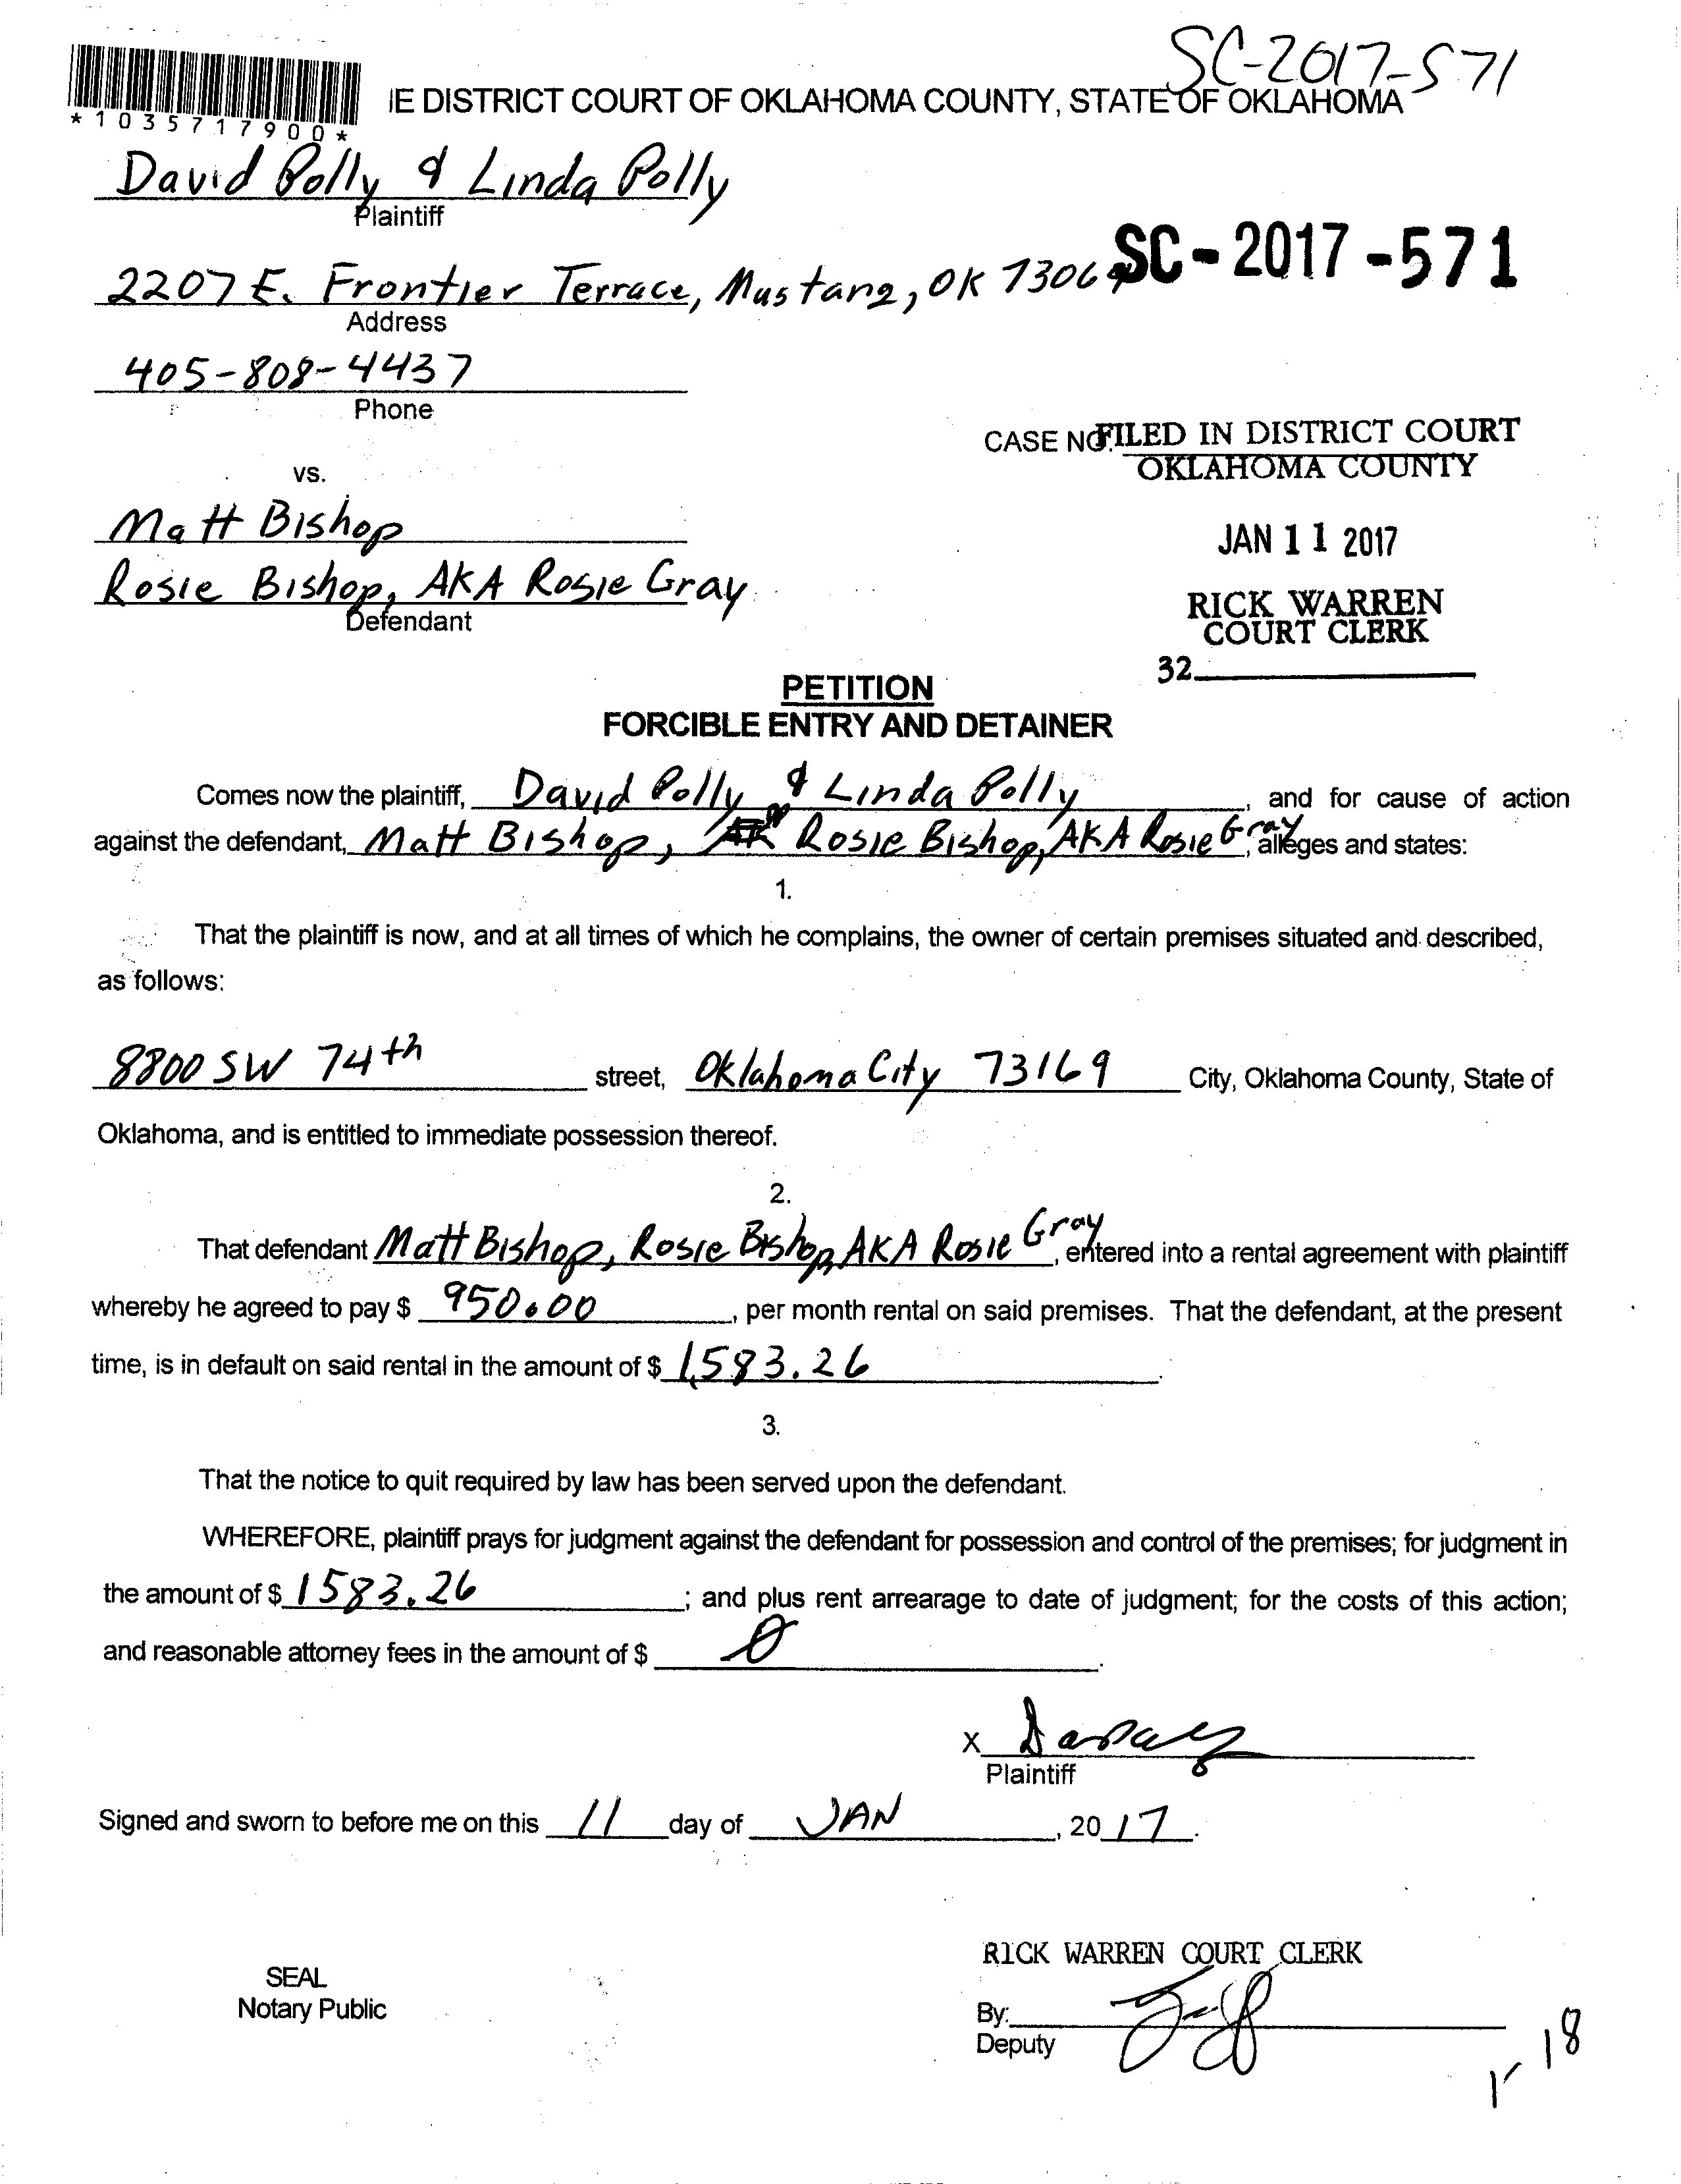 SC-2017-571
IE DISTRICT COURT OF OKLAHOMA COUNTY, STATE OF OKLAHOMA
*1035717900*
David Polly & Linda Polly
Plaintiff
SC-2017-571
2207 E. Frontier Terrace, Mustang, OK 73064
Address
405-808-4437
Phone
CASE NO. FILED IN DISTRICT COURT
OKLAHOMA COUNTY
vs.
Matt Bishop
JAN 11 2017
Rosie Bishop, AKA Rosie Gray
Defendant
RICK WARREN
COURT CLERK
32
PETITION
FORCIBLE ENTRY AND DETAINER
Comes now the plaintiff, David Polly & Linda Polly, and for cause of action
against the defendant, Matt Bishop, Rosie Bishop, AKA Rosie Gray, alleges and states:
1.
That the plaintiff is now, and at all times of which he complains, the owner of certain premises situated and described,
as follows:
8800 SW 74th street, Oklahoma City 73169 City, Oklahoma County, State of
Oklahoma, and is entitled to immediate possession thereof.
2.
That defendant Matt Bishop, Rosie Bishop, AKA Rosie Gray, entered into a rental agreement with plaintiff
whereby he agreed to pay $ 950.00, per month rental on said premises. That the defendant, at the present
time, is in default on said rental in the amount of $ 1,583.26.
3.
That the notice to quit required by law has been served upon the defendant.
WHEREFORE, plaintiff prays for judgment against the defendant for possession and control of the premises; for judgment in
the amount of $ 1583.26; and plus rent arrearage to date of judgment; for the costs of this action;
and reasonable attorney fees in the amount of $ 0.
X
Plaintiff
Signed and sworn to before me on this 11 day of JAN, 2017.
RICK WARREN COURT CLERK
SEAL
Notary Public
By:
Deputy
18